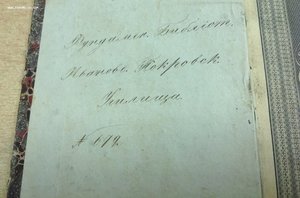 Фундамен. Библіот.
Иваново. Покровск.
Училища
№ 679.